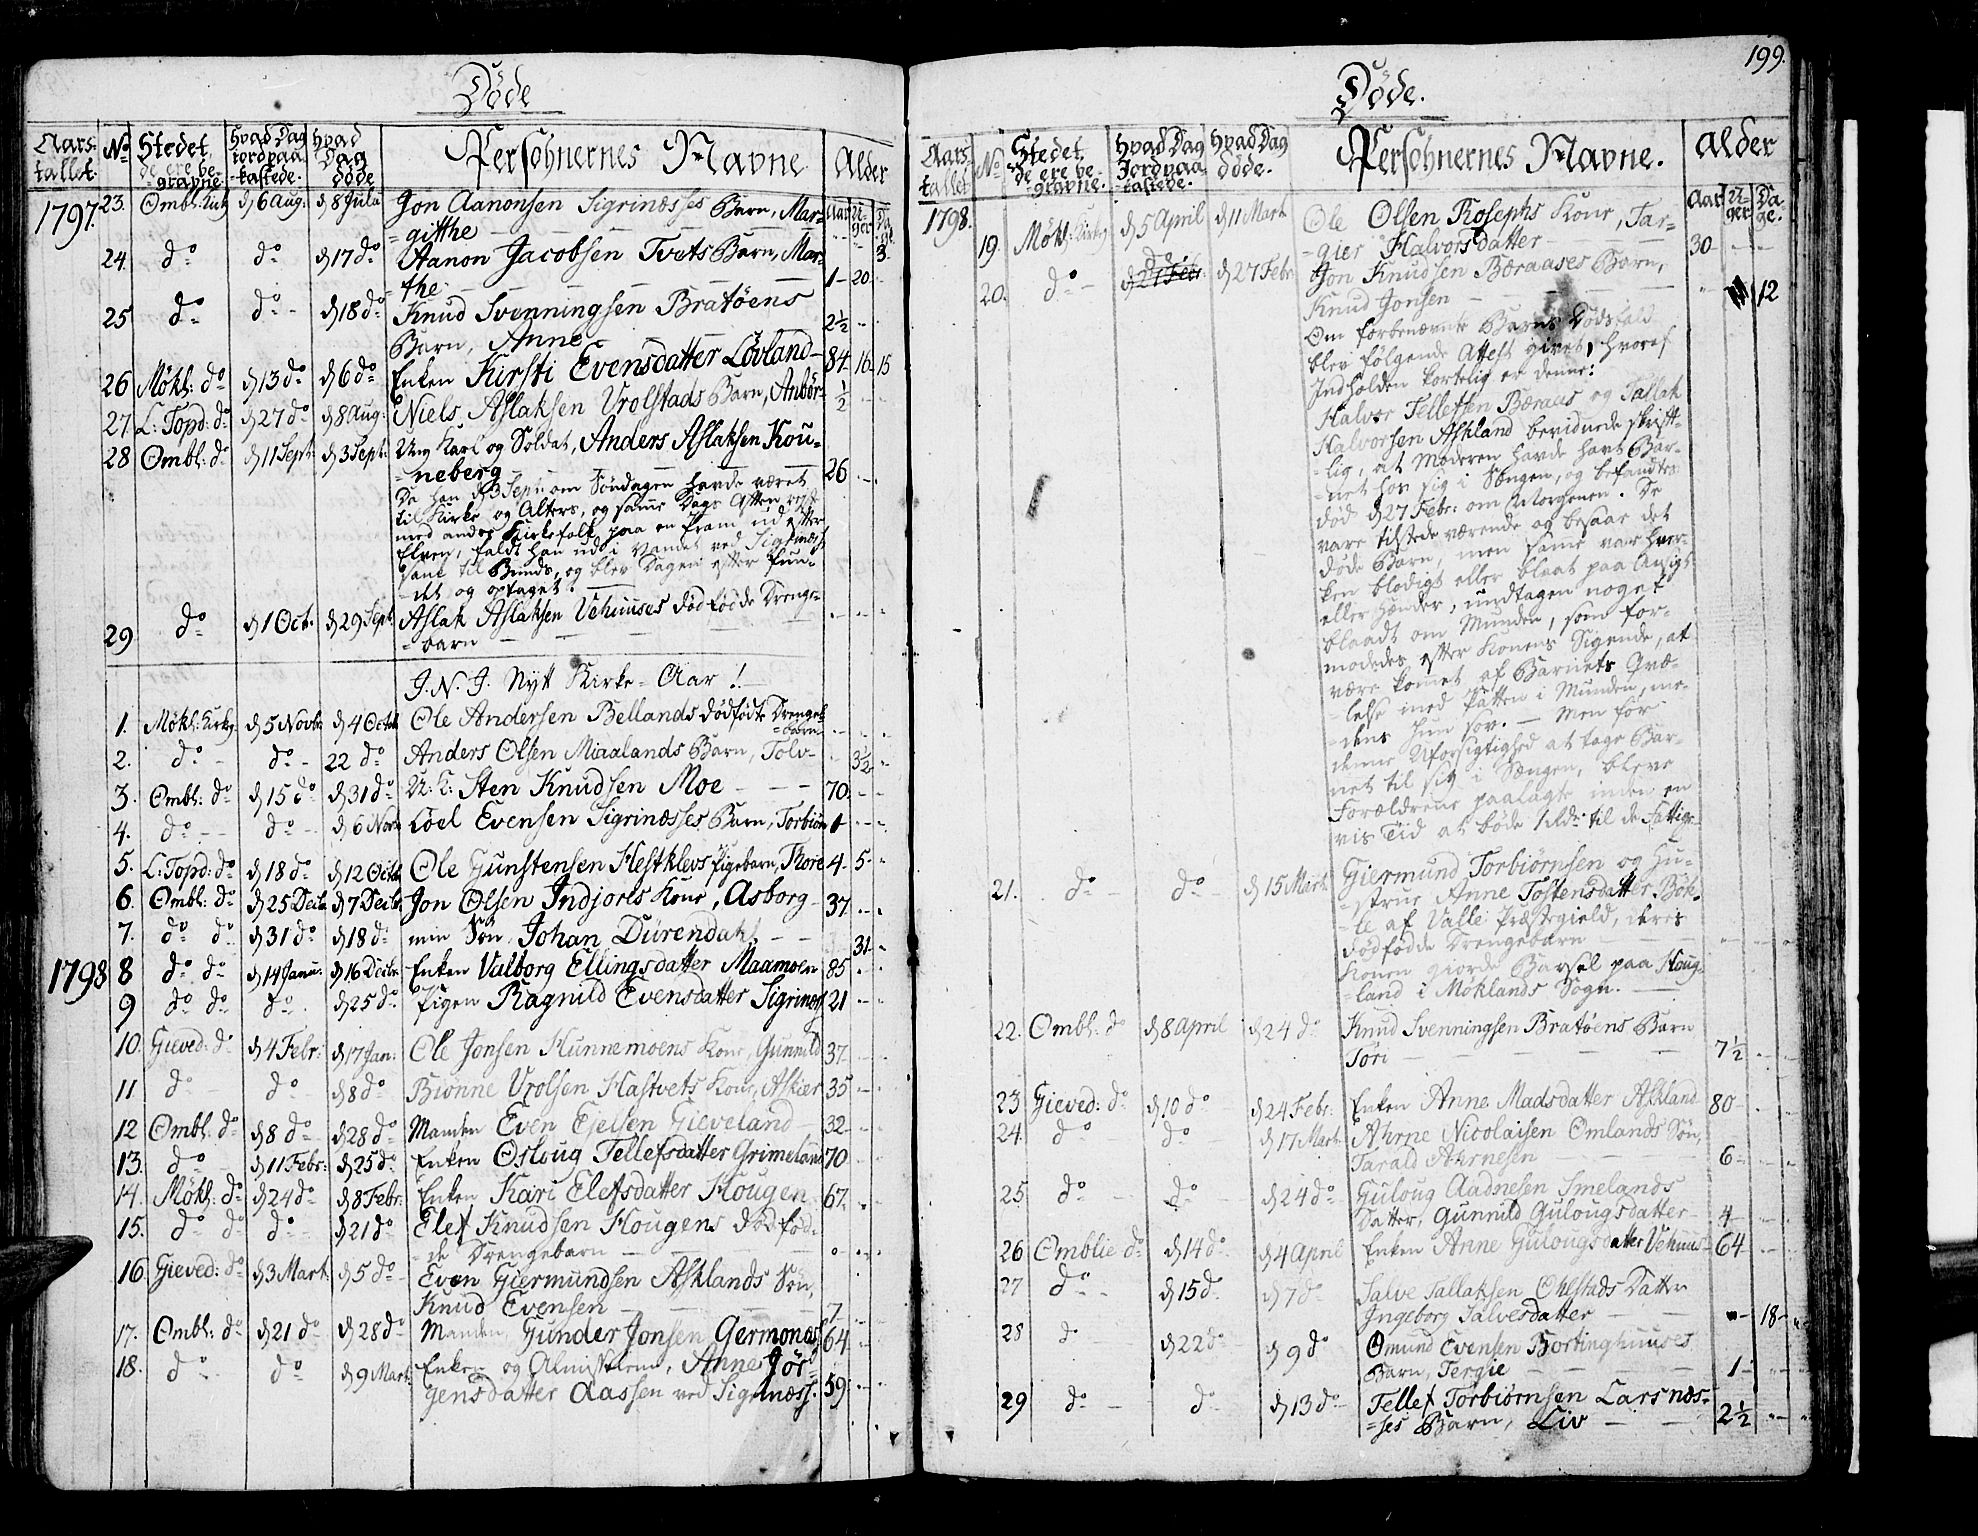 Døde
Aars- tallet. No Stedet de ere be- gravne Hvad Dag Jord paa- kastede. Hvad Dag døde Persohnernes Navne Alder
1797. 23. Ombl: Kirk d 6 Aug: d 8 Julii Jon Aanonsen Sigrinæsses Barn, Mar- Aar U- ger Da ge
=githe — — — 3
24. do do d 17 do Aanon Jacobsen Tvets Barn, Mar-
=the — — — 1 - 20
25 do do d 18 do Knud Svenningsen Bratøens
Barn, Anne 2½
26 Møkl: do d 13 do d 6 do Enken Kirsti Evensdatter Løvland 84 16 15
27. L: Topd: do d 27 do d 8 Aug: Niels Aslaksen Vrolstads Barn, Anbør- ½
28 Ombl: do d 11 Sept: d 3 Sept: Ung Karl og Soldat, Anders Aslaksen Kou-
=neberg — — — 26
Da han d 3 Sept: om Søndagen havde været
til Kirke og Alters, og samme Dags Aften rest
med andre Kirkefolk paa en Pram ud efter
Elven, faldt han ud i Vandet ved Sigrinæss
sank til Bunds, og blev Dagen efter fun-
=det og optaget.
29 do d 1 Oct. d 29 Sept: Aslak Aslaksen Vehuuses dødfødde Drenge-
=barn — — —
J. N. J. Nytt Kirke-Aar!
1. Møkl: Kirke d 5 Novbr d 4 Octob Ole Andersen Bellands dødfødte Drenge
=barn
2. do do 22 do Anders Olsen Miaalands Barn, Tolv- 3½
3. Ombl: do d 15 do d 31 do U: K: Sten Knudsen Moe — — — 70
4. do do d 6 Nov Loel Evensen Sigrinæsses Barn, Torbiør 1
5. L: Topd: do d 18 do d 12 Octob Ole Gunstensen Hestklevs Pigebarn, Thore 4- 5-
6. Ombl: do d 25 Decbr d 7 Decbr. Jon Olsen Indjorls Kone, Asborg 37
7. do do d 31 do d 18 do min Søn, Johan Dürendahl — — 31-
1798 8 do do d 14 Janu: d 16 Decbr. Enken Valborg Ellingsdatter Maamoen 85
9 do do do d 25 do Pigen Ragnild Evensdatter Sigrinæss 21
10. Gieved: do d 4 Febr: d 17 Jan: Ole Jonsen Hunnemoens Kone, Gunnild 37
11 do do d 8 do Biønne Vrolsen Hastvets Kone, Askier 35
12 Ombl: do d 8 do d 28 do Manden Even Ejelsen Gieveland 32-
13. do d 11 Febr: d 25 do Enken Oslaug Tellefsdatter Grimeland 70
14. Møkl: do d 24 do d 8 Febr: Enken Kari Elefsdatter Hougen 67
15. do do do d 21 do Elef Knudsen Hougens dødfød-
=de Drengebarn
16 Gieved: do d 3 Mart. d 5 do Even Giermundsen Asklands Søn,
Knud Evensen — — 7
17. Ombl: do d 21 do d 28 do Manden, Gunder Jonsen Germonæss 64
18. do do d 9 Mart. Enken og Almisselem, Anne Jør-
gensdatter Aassen ved Sigrinæss: 59
199.
Døde.
Aars- tallet No Stedet de ere be- gravne. Hvad Dag Jord paa- kastede. Hvad Dag døde. Persohnernes Navne. Alder
Aar U- ger Da ge.
1798. 19. Møkl: Kirke d 5 April d 11 Mart. Ole Olsen Rosephs Kone, Tar-
=gier Halvorsdatter 30
20. do d 27 Febr: d 27 Febr: Jon Knudsen Bæraases Barn,
Knud Jonsen — — 12
Om forbenævnte Barns Dødsfald
blev følgende Attest givet, hvoraf
Indholden kortelig er denne:
Halvor Tellefsen Bæraas og Tallak
Halvorsen Askland bevidnede skrift-
=lig, at Moderen havde havt Bar-
=net hos sig i Sængen, og befandtes
død d 27 Febr: om Morgenen. De
vare tilstede værende og besaae det
døde Barn, men same var hver-
ken blodigt eller blaat paa Ansigt
eller Hænder, undtagen noget
blaadt om Munden, som for-
modedes efter Konens Sigende, at
være komet af Barnets Qvæ-
=lelse med Patten i Munden, me-
=dens hun sov. — Men for
denne Uforsigtighed at tage Bar-
net til sig i Sængen, bleve
Forældrene paalagte inden en
vis Tid at bøde 1 rdr til de Fattige
21. do do d 15 Mart. Giermund Torbiørnsen og Hu-
=strue Anne Tostensdatter Bøk-
=le af Valle Præstegield, deres
dødfødde Drengebarn
Konen giorde Barsel paa Houg-
=land i Møklands Sogn.
22. Ombl: do d 8 April d 24 do Knud Svenningsen Bratøens Barn
Tori — — 7½
23 Gieved: do d 10 do d 24 Febr: Enken Anne Madsdatter Askland 80
24. do do d 17 Mart. Ahrne Nicolaisen Omlands Søn,
Tarald Ahrnesen 6
25 do do d 24 do Guloug Aadnesen Smelands
Datter, Gunnild Gulougsdatter 4
26 Omblie do d 14 do d 4 April Enken Anne Gulougsdatter Vehuus 64
27 do d 15 do d 7 do Salve Tallaksen Ohlstads Datter
Ingeborg Salvesdatter — 18-
28 do d 22 do d 9 do Omund Evensen Bortinghuuses
Barn, Tergie — 1-
29 do do d 13 do Tellef Torbiørnsen Larsnæs-
=ses Barn, Liv — 2½